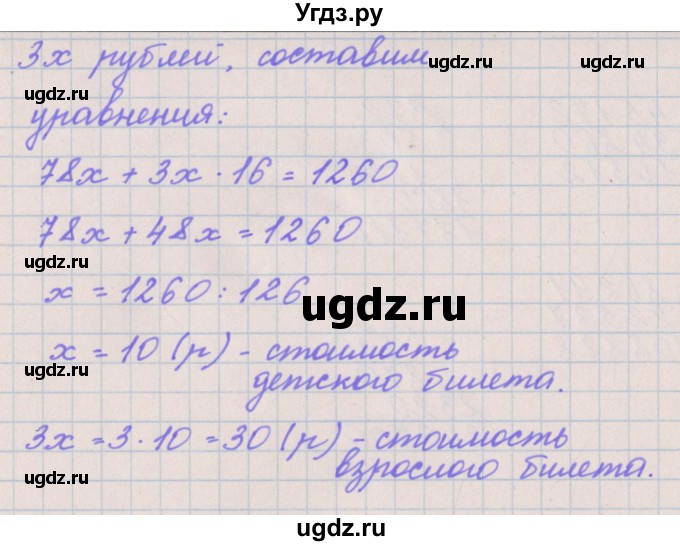 Угдз.ру
3х рублей, составим
ugdz.ru
ugdz.ru
ugdz.ru
уравнения:
ugdz.ru
ugdz.ru
78х + 3х · 16 = 1260
78х + 48х = 1260
ugdz.ru
х = 1260 : 126
ugdz.ru
х = 10 (р) - стоимость
ugdz.ru
детского билета.
ugdz.ru
3х = 3 · 10 = 30 (р) - стоимость
взрослого билета.
ugdz.ru
ugdz.ru
ugdz.ru